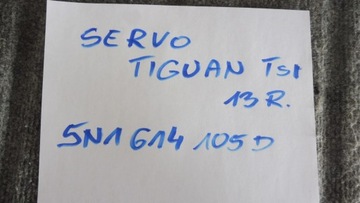 SERVO
TIGUAN TSI
13R.
5N1 614 105 D